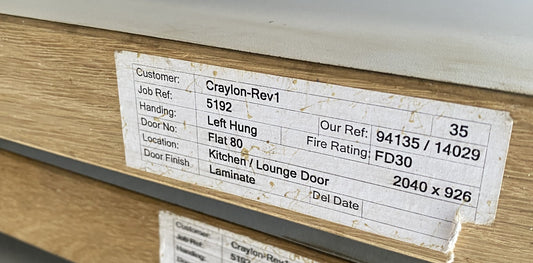 Customer: Craylon-Rev1 35
Job Ref: 5192 Our Ref: 94135 / 14029
Handing: Left Hung Fire Rating: FD30
Door No: Flat 80
Location: Kitchen / Lounge Door 2040 x 926
Door Finish Laminate Del Date
Customer: Craylon-Rev1
Job Ref: 5192
Handing: